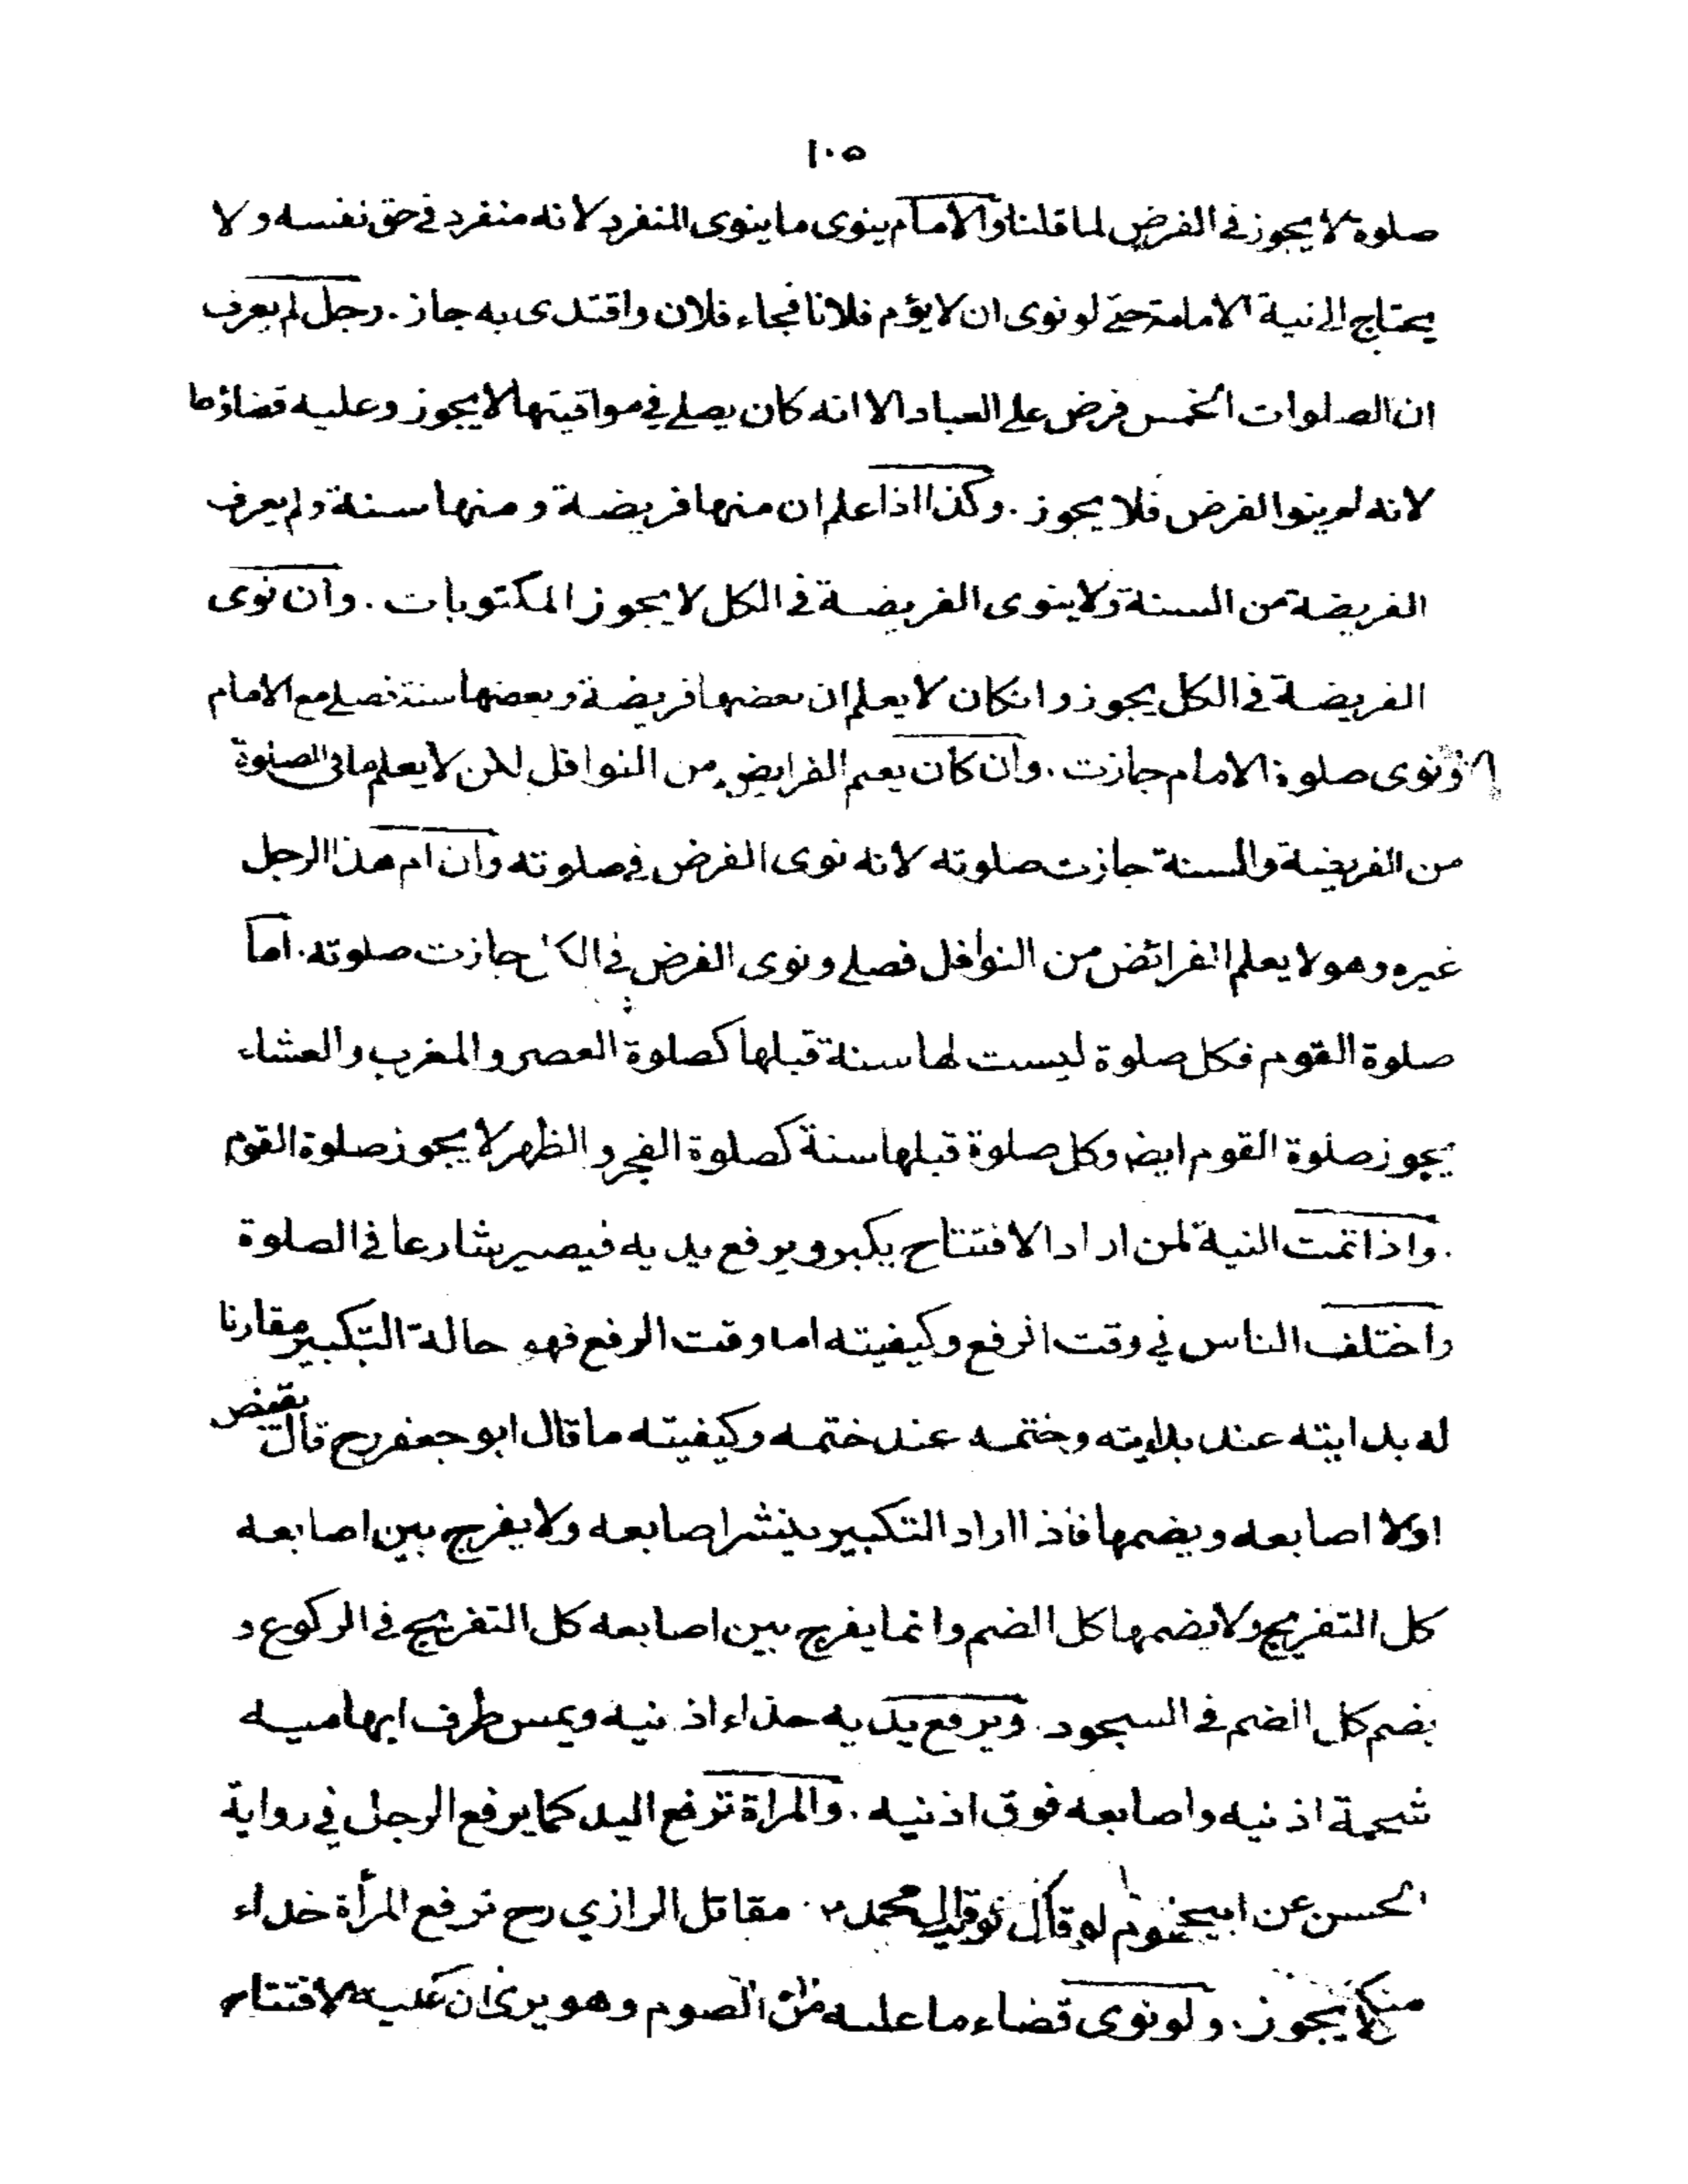 ١٠٥
صلوة لا يجوز في الفرض لما قلنا والامام ينوى ما ينوى المنفرد لانه منفرد في حق نفسه ولا
يحتاج الى نية الامامة حتى لو نوى ان لا يؤم فلانا فجاء فلان واقتدى به جاز . رجل لم يعرف
ان الصلوات الخمس فرض على العباد الا انه كان يصلى في مواقيتها لا يجوز وعليه قضاؤها
لانه لم ينوا الفرض فلا يجوز . وكذا اذا علم ان منها فريضة ومنها سنة ولم يعرف
الفريضة من السنة ولا ينوى الفريضة في الكل لا يجوز المكتوبات . وان نوى
الفريضة في الكل يجوز وانكان لا يعلم ان بعضها فريضة وبعضها سنة فصلى مع الامام
ونوى صلوة الامام جازت . وان كان يعلم الفرايض من النوافل لكن لا يعلم ما في الصلوة
من الفريضة والسنة جازت صلوته لانه نوى الفرض في صلوته وان ام هذا الرجل
غيره وهو لا يعلم الفرائض من النوافل فصلى ونوى الفرض في الكل جازت صلوته . اما
صلوة القوم فكل صلوة ليست لها سنة قبلها كصلوة العصر والمغرب والعشاء
يجوز صلوة القوم ايضا وكل صلوة قبلها سنة كصلوة الفجر والظهر لا يجوز صلوة القوم
. واذا تمت النية لمن اراد الافتتاح يكبر ويرفع يديه فيصير شارعا في الصلوة
واختلف الناس في وقت الرفع وكيفيته اما وقت الرفع فهو حالة التكبير مقارنا
له بدايته عند بدايته وختمه عند ختمه وكيفيته ما قال ابو جعفر رح قال يقبض
اولا اصابعه ويضمها فاذا اراد التكبير ينشر اصابعه ولا يفرج بين اصابعه
كل التفريج ولا يضمها كل الضم وانما يفرج بين اصابعه كل التفريج في الركوع و
يضم كل الضم في السجود . ويرفع يديه حذاء اذنيه ويمس طرف ابهاميه
شحمة اذنيه واصابعه فوق اذنيه . والمراة ترفع اليد كما يرفع الرجل في رواية
الحسن عن مقاتل الرازي رح ترفع المرأة خداء
يجوز . ولو نوى قضاء ما عليه من الصوم وهو يرى ان عليه